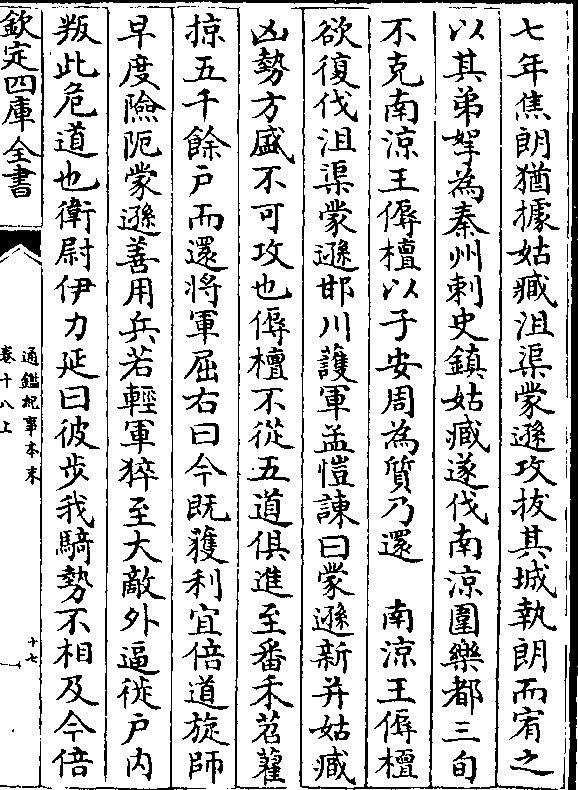 七年焦朗猶據姑臧沮渠蒙遜攻拔其城執朗而宥之
以其弟挐為秦州刺史鎮姑臧遂伐南涼圍樂都三旬
不克南涼王傉檀以子安周為質乃還　南涼王傉檀
欲復伐沮渠蒙遜邯川護軍孟愷諫曰蒙遜新并姑臧
凶勢方盛不可攻也傉檀不從五道俱進至番禾苕藋
掠五千餘户而還將軍屈右曰今既獲利宜倍道旋師
早度險阨蒙遜善用兵若輕軍猝至大敵外逼徙户内
叛此危道也衛尉伊力延曰彼步我騎勢不相及今倍
欽定四庫全書
通鑑紀事本末
卷十八上
十七